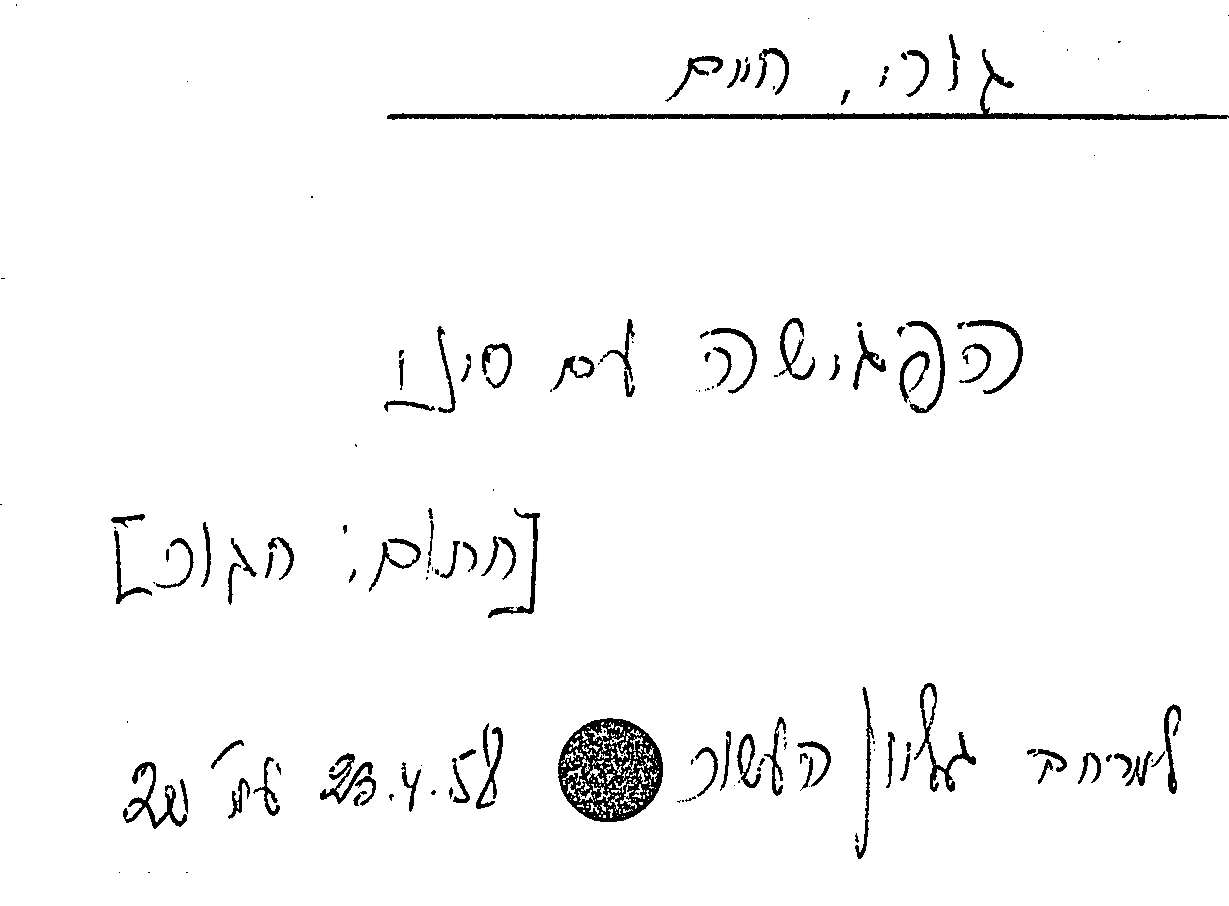 גורי, חיים
הפגישה עם סיני
[חתום: חגור]
למרחב גליון העשור 23.4.58 עמ'